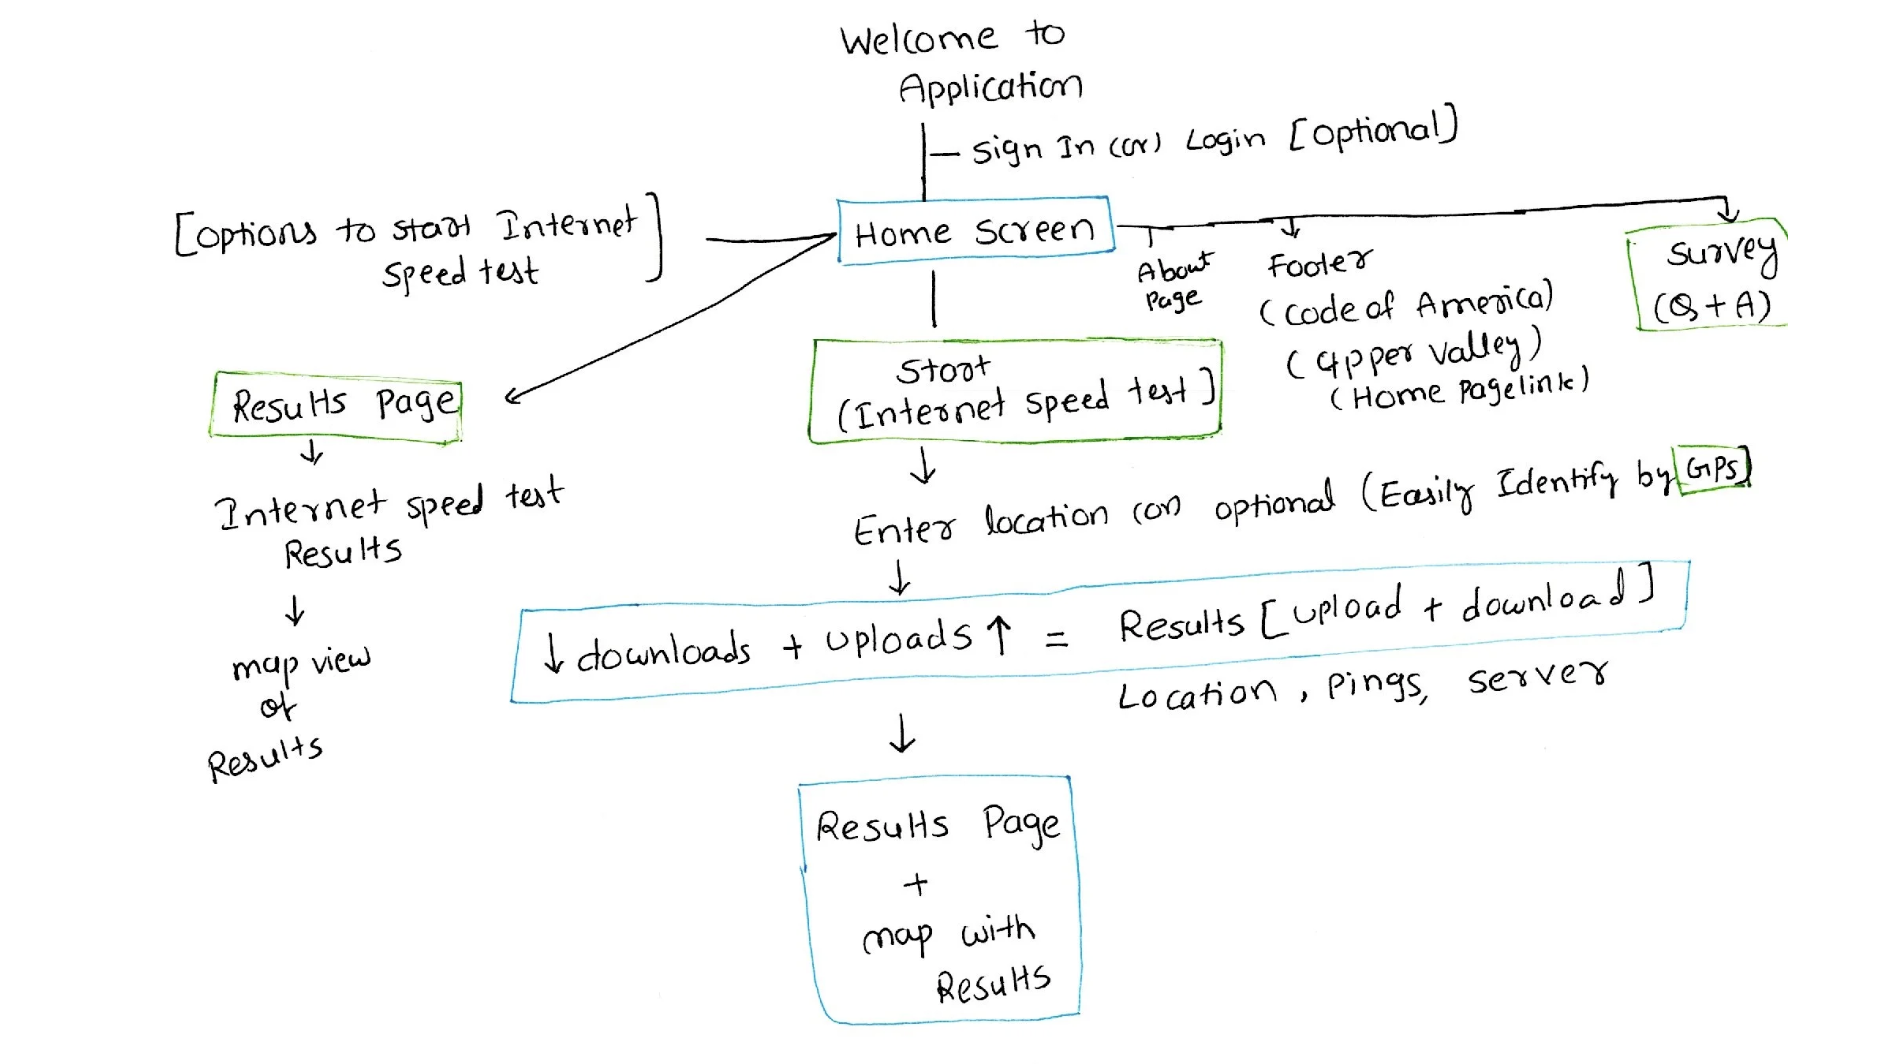 Welcome to
Application
Sign In (or) Login [optional]
[options to start Internet
speed test]
Home Screen
About
Page
Footer
(Code of America)
(Upper valley)
(Home Pagelink)
Survey
(Q + A)
Start
(Internet speed test]
Results Page
↓
Internet speed test
Results
↓
map view
of
Results
↓
Enter location (or) optional (Easily Identify by GPS)
↓
↓ downloads + uploads ↑ = Results [upload + download]
Location, Pings, server
↓
Results Page
+
map with
Results